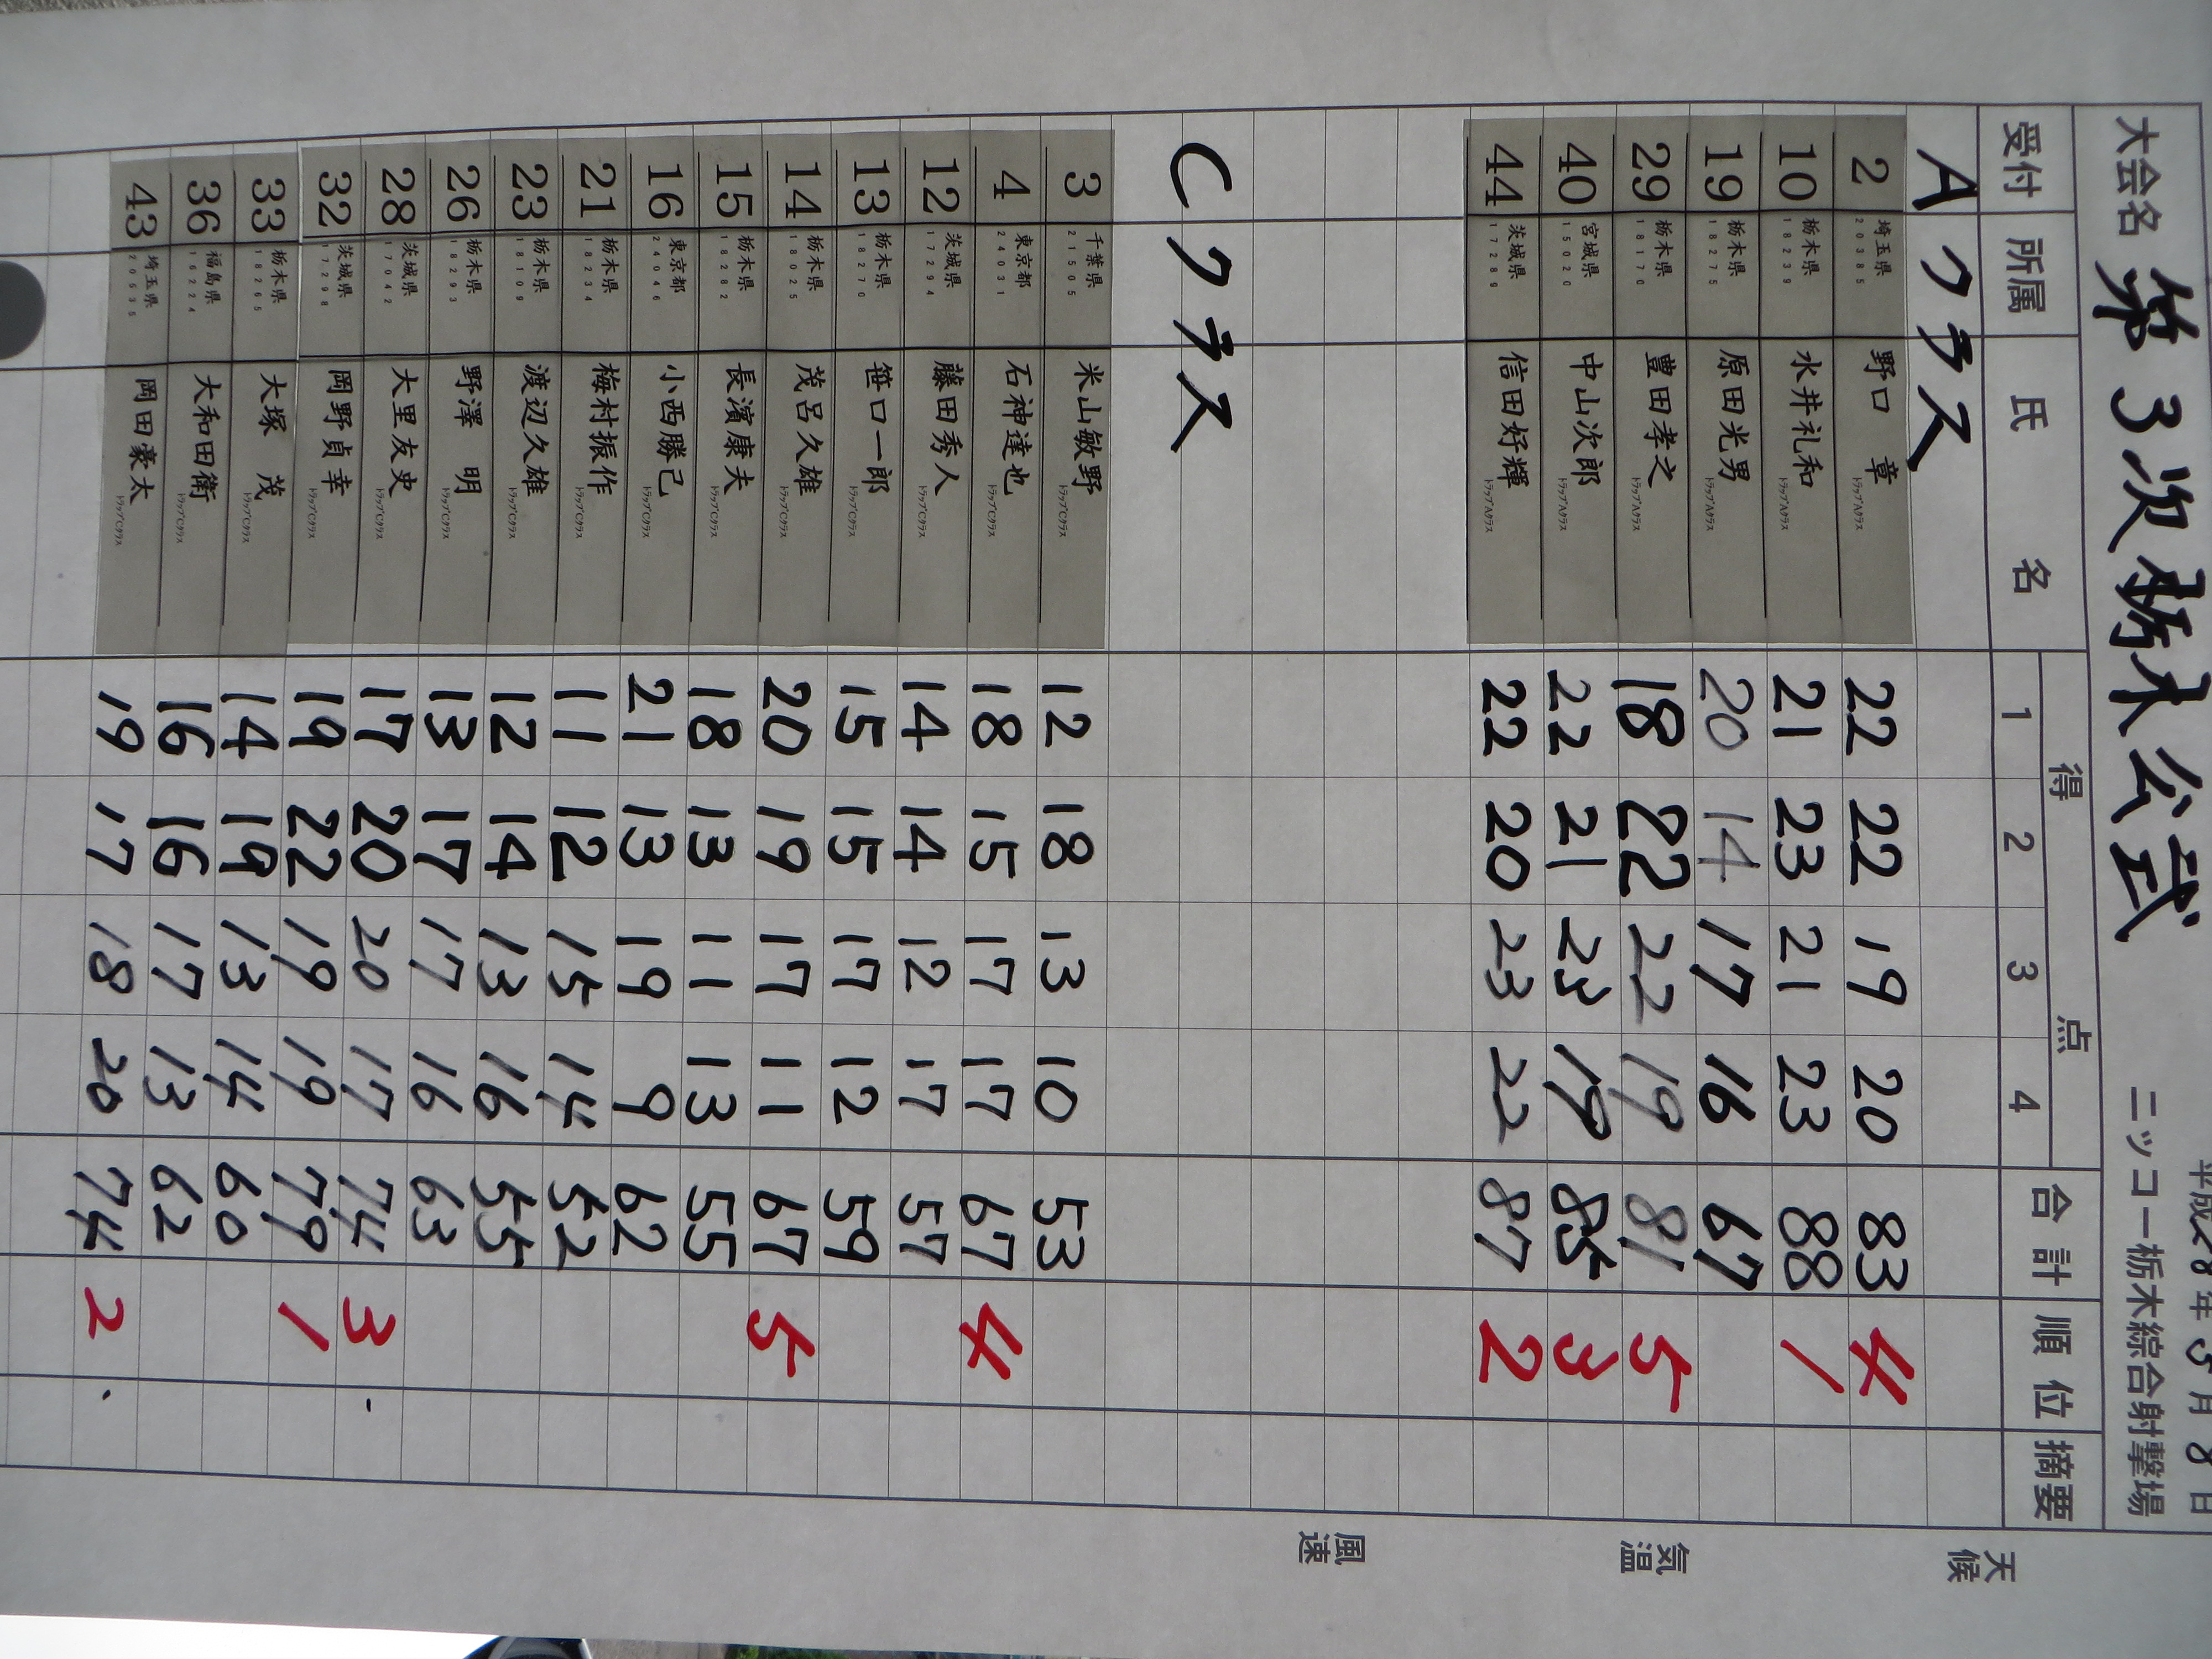 平成28年5月8日
大会名 第3次栃木公式 ニッコー栃木綜合射撃場
受付 所属 氏名 得点 合計 順位 摘要
1 2 3 4
Aクラス
2 埼玉県 20385 野口 章 トラップAクラス 22 22 19 20 83 4
10 栃木県 18239 水井礼和 21 23 21 23 88 1
19 栃木県 18275 原田光男 トラップAクラス 20 14 17 16 67
29 栃木県 18170 豊田孝之 トラップAクラス 18 22 22 19 81 5
40 宮城県 15020 中山次郎 トラップAクラス 22 21 23 19 85 3
44 茨城県 17289 信田好輝 トラップAクラス 22 20 23 22 87 2
Cクラス
3 千葉県 21505 米山敏野 トラップCクラス 12 18 13 10 53
4 東京都 24031 石神達也 トラップCクラス 18 15 17 17 67 4
12 茨城県 17294 藤田秀人 トラップCクラス 14 14 12 17 57
13 栃木県 18270 笹口一郎 トラップCクラス 15 15 17 12 59
14 栃木県 18025 茂呂久雄 トラップCクラス 20 19 17 11 67 5
15 栃木県 18282 長濱康夫 トラップCクラス 18 13 11 13 55
16 東京都 24046 小西勝己 トラップCクラス 21 13 19 9 62
21 栃木県 18234 梅村振作 トラップCクラス 11 12 15 14 52
23 栃木県 18109 渡辺久雄 トラップCクラス 12 14 13 16 55
26 栃木県 18293 野澤 明 トラップCクラス 13 17 17 16 63
28 茨城県 17042 大里友史 トラップCクラス 17 20 20 17 74 3
32 茨城県 17298 岡野貞幸 トラップCクラス 19 22 19 19 79 1
33 栃木県 18265 大塚 茂 トラップCクラス 14 19 13 14 60
36 福島県 16224 大和田衛 トラップCクラス 16 16 17 13 62
43 埼玉県 20635 岡田豪太 トラップCクラス 19 17 18 20 74 2
天候
気温
風速